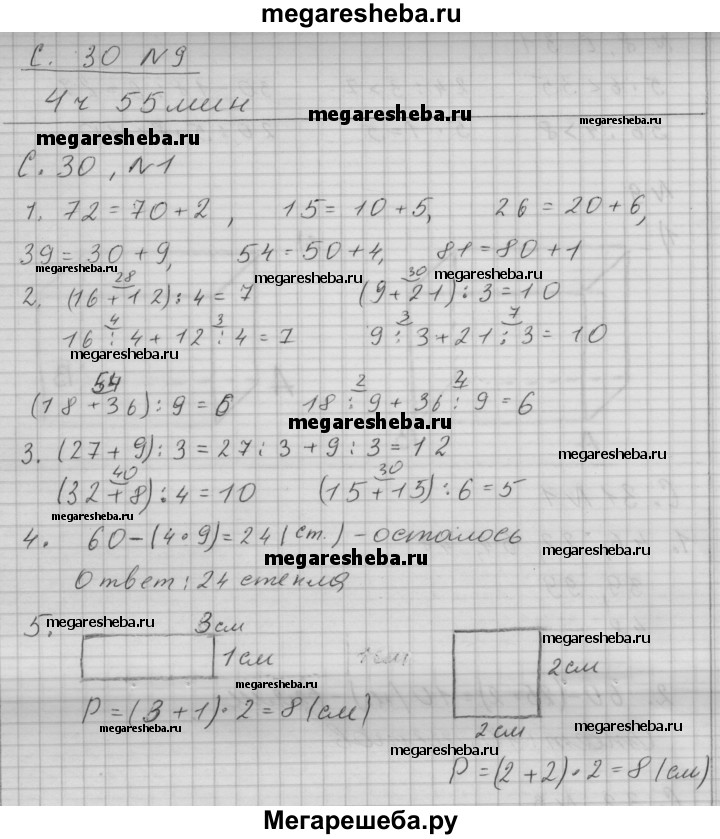 megaresheba.ru
С. 30 №9
4 ч 55 мин
megaresheba.ru
megaresheba.ru
megaresheba.ru
С. 30, №1
1. 72 = 70 + 2, 15 = 10 + 5, 26 = 20 + 6,
39 = 30 + 9, 54 = 50 + 4, 81 = 80 + 1
megaresheba.ru
megaresheba.ru
megaresheba.ru
28 30
2. (16 + 12) : 4 = 7 (9 + 21) : 3 = 10
4 3 3 7
16 : 4 + 12 : 4 = 7 9 : 3 + 21 : 3 = 10
megaresheba.ru
megaresheba.ru
54 2 4
(18 + 36) : 9 = 6 18 : 9 + 36 : 9 = 6
megaresheba.ru
3. (27 + 9) : 3 = 27 : 3 + 9 : 3 = 12
megaresheba.ru
40 30
(32 + 8) : 4 = 10 (15 + 15) : 6 = 5
megaresheba.ru
4. 60 - (4 · 9) = 24 (ст.) - осталось
megaresheba.ru
megaresheba.ru
Ответ: 24 стекла
5. megaresheba.ru 3 см
megaresheba.ru
1 см 1 см 2 см
megaresheba.ru
megaresheba.ru
P = (3 + 1) · 2 = 8 (см)
megaresheba.ru
2 см
megaresheba.ru
megaresheba.ru
P = (2 + 2) · 2 = 8 (см)
megaresheba.ru
Мегарешеба.ру